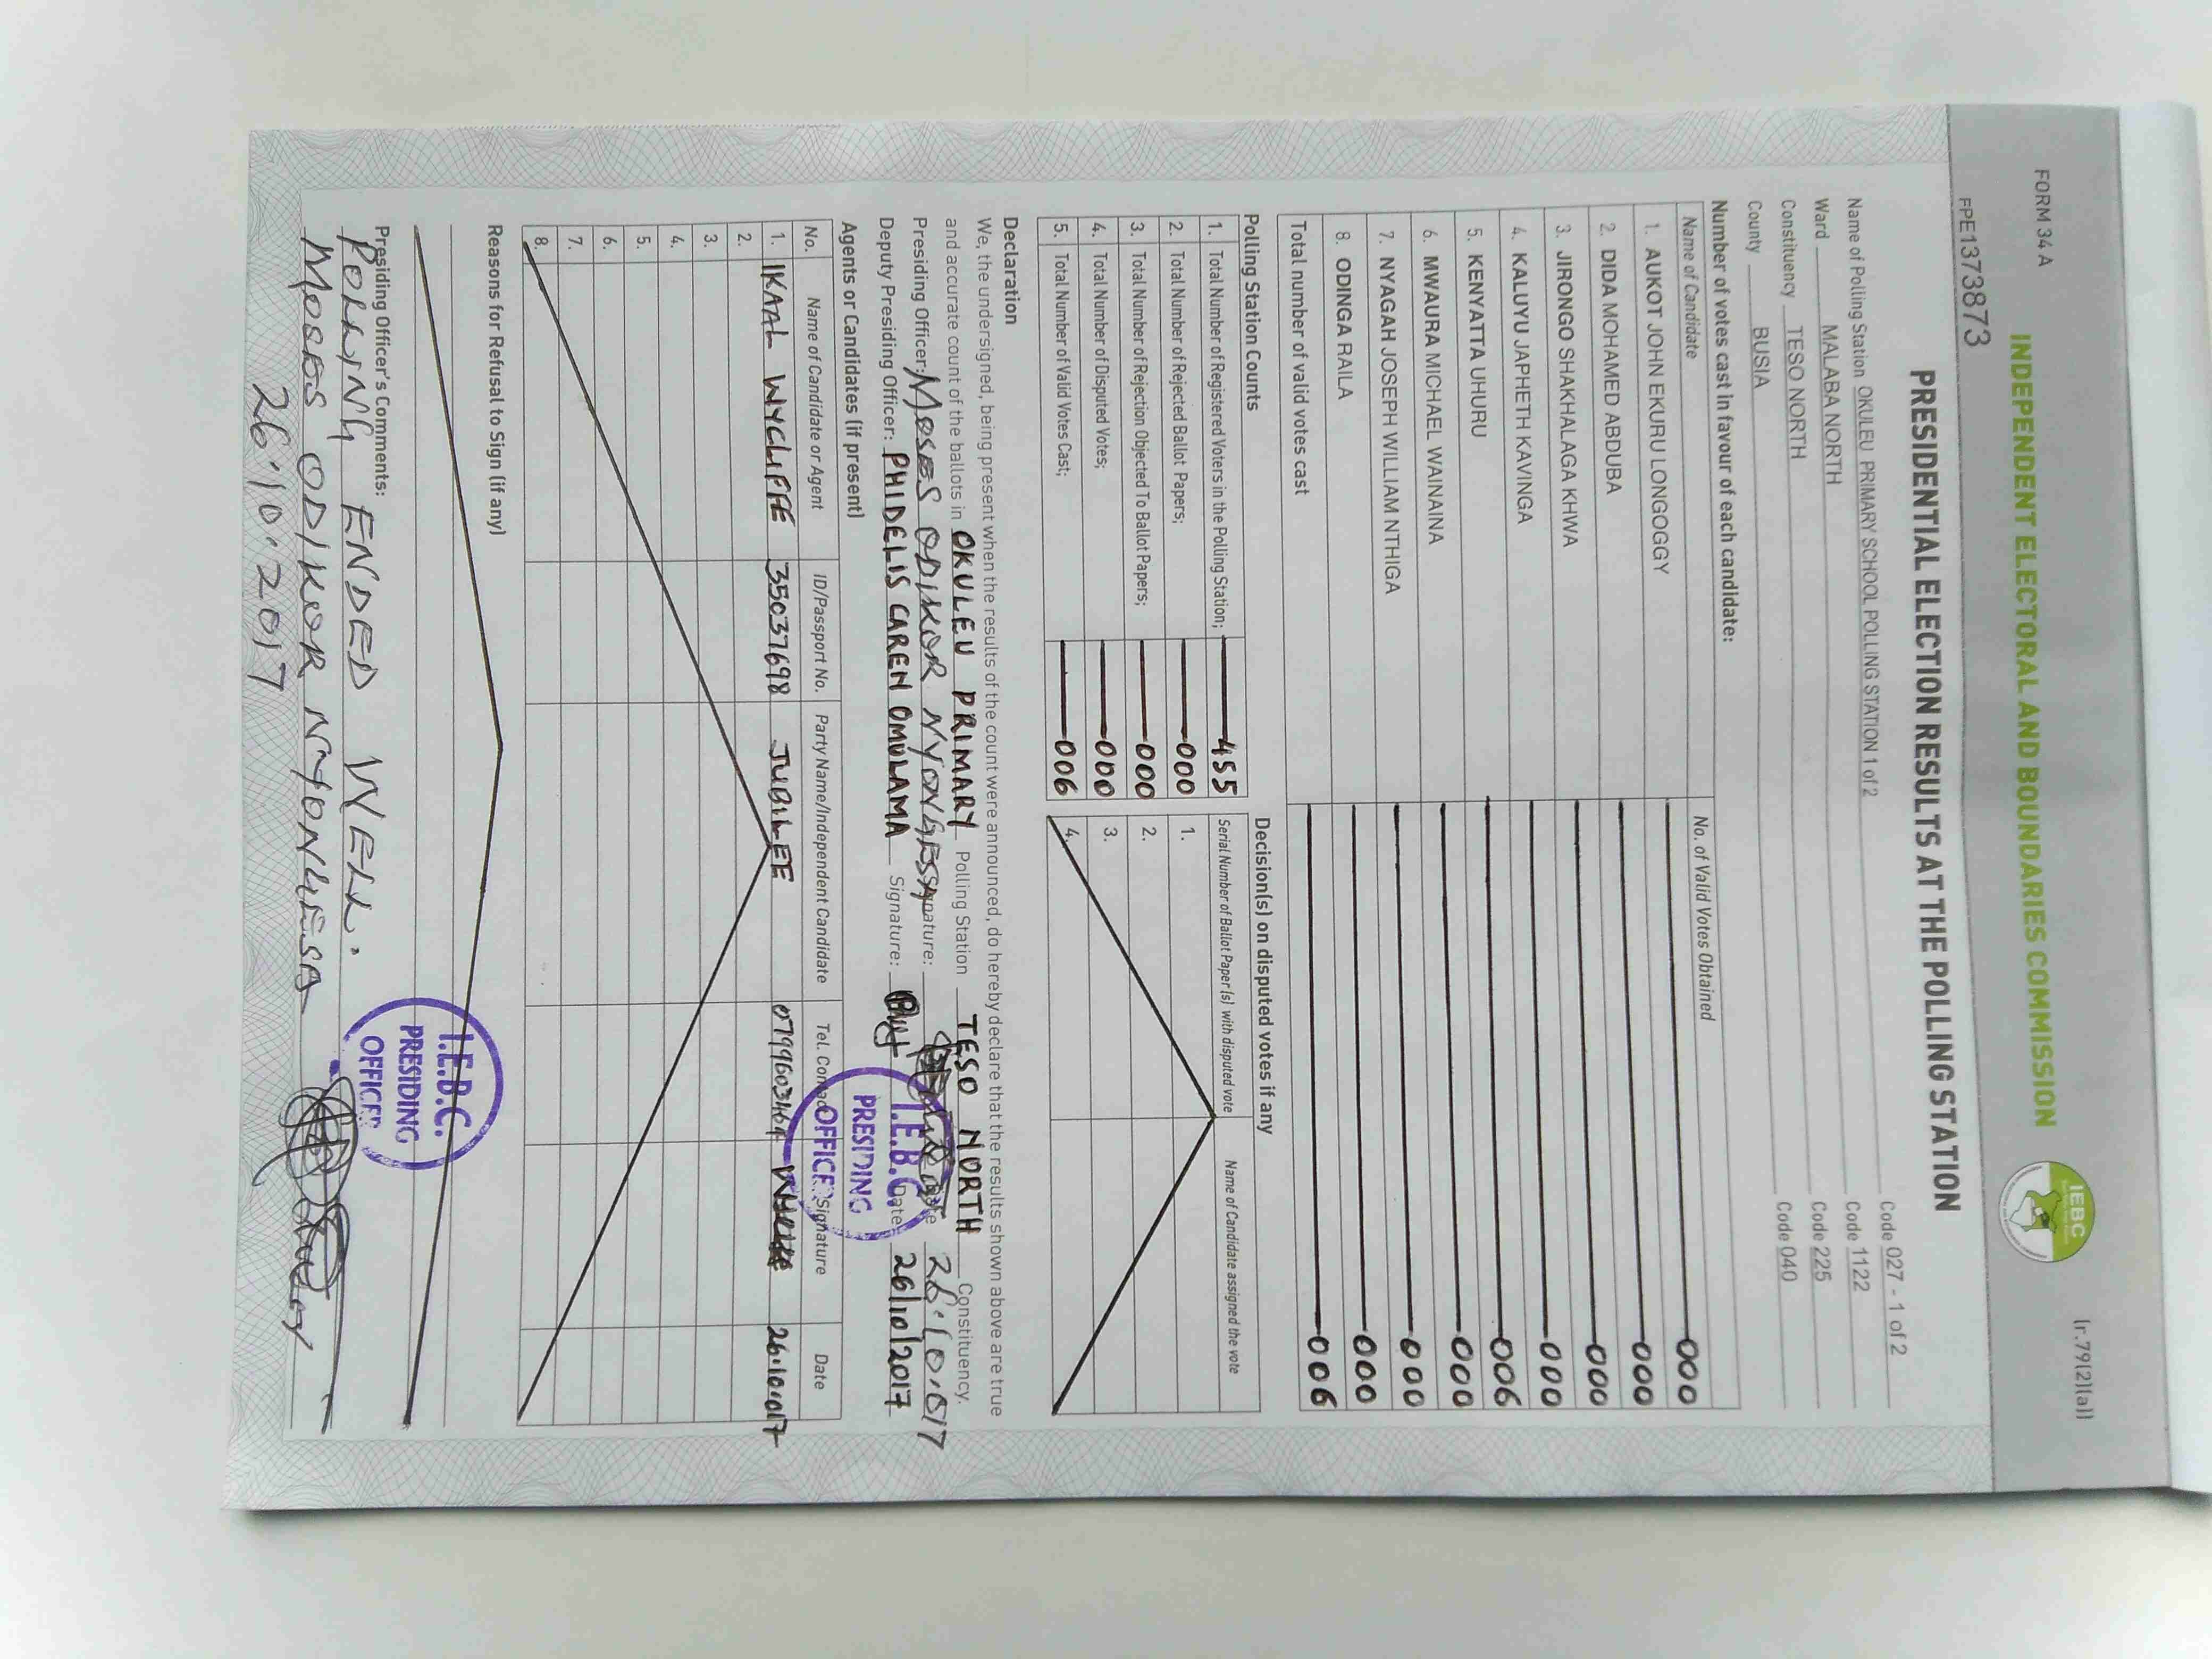 FORM 34 A
(r.79(2)(a))
INDEPENDENT ELECTORAL AND BOUNDARIES COMMISSION
IEBC
FPE1373873
PRESIDENTIAL ELECTION RESULTS AT THE POLLING STATION
Name of Polling Station OKULEU PRIMARY SCHOOL POLLING STATION 1 of 2 Code 027 - 1 of 2
Ward MALABA NORTH Code 1122
Constituency TESO NORTH Code 225
County BUSIA Code 040
Number of votes cast in favour of each candidate:
Name of Candidate No. of Valid Votes Obtained
1. AUKOT JOHN EKURU LONGOGGY 000
2. DIDA MOHAMED ABDUBA 000
3. JIRONGO SHAKHALAGA KHWA 000
4. KALUYU JAPHETH KAVINGA 000
5. KENYATTA UHURU 006
6. MWAURA MICHAEL WAINAINA 000
7. NYAGAH JOSEPH WILLIAM NTHIGA 000
8. ODINGA RAILA 000
Total number of valid votes cast 006
Polling Station Counts
1. Total Number of Registered Voters in the Polling Station; 455
2. Total Number of Rejected Ballot Papers; 000
3. Total Number of Rejection Objected To Ballot Papers; 000
4. Total Number of Disputed Votes; 000
5. Total Number of Valid Votes Cast; 006
Decision(s) on disputed votes if any
Serial Number of Ballot Paper(s) with disputed vote Name of Candidate assigned the vote
1.
2.
3.
4.
Declaration
We, the undersigned, being present when the results of the count were announced, do hereby declare that the results shown above are true
and accurate count of the ballots in OKULEU PRIMARY Polling Station TESO NORTH Constituency.
Presiding Officer: MOSES ODIKOR NYONGESA Signature: Date 26.10.017
Deputy Presiding Officer: PHIDELIS CAREN OMULAMA Signature: Date 26/10/2017
I.E.B.C.
PRESIDING
OFFICER
Agents or Candidates (if present)
No. Name of Candidate or Agent ID/Passport No. Party Name/Independent Candidate Tel. Contact Signature Date
1. IKAAL WYCLIFFE 35037698 JUBILEE 26.10.017
2.
3.
4.
5.
6.
7.
8.
Reasons for Refusal to Sign (if any)
I.E.B.C.
PRESIDING
OFFICER
Presiding Officer's Comments:
POLLING ENDED WELL.
MOSES ODIKOR NYONGESA
26.10.2017